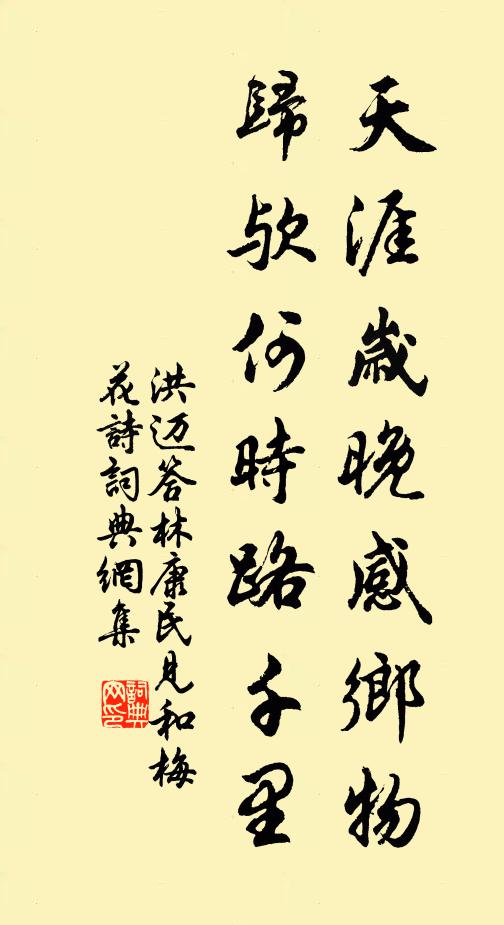 天涯歲晚感鄉物
歸欤何時路千里
洪迈答林康民見和梅
花詩詞典網集
詞典
网印